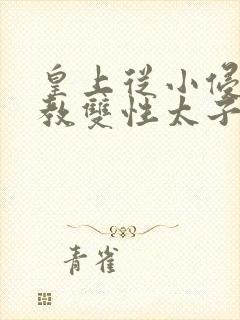 皇上從小侵
教雙性太子
青雀